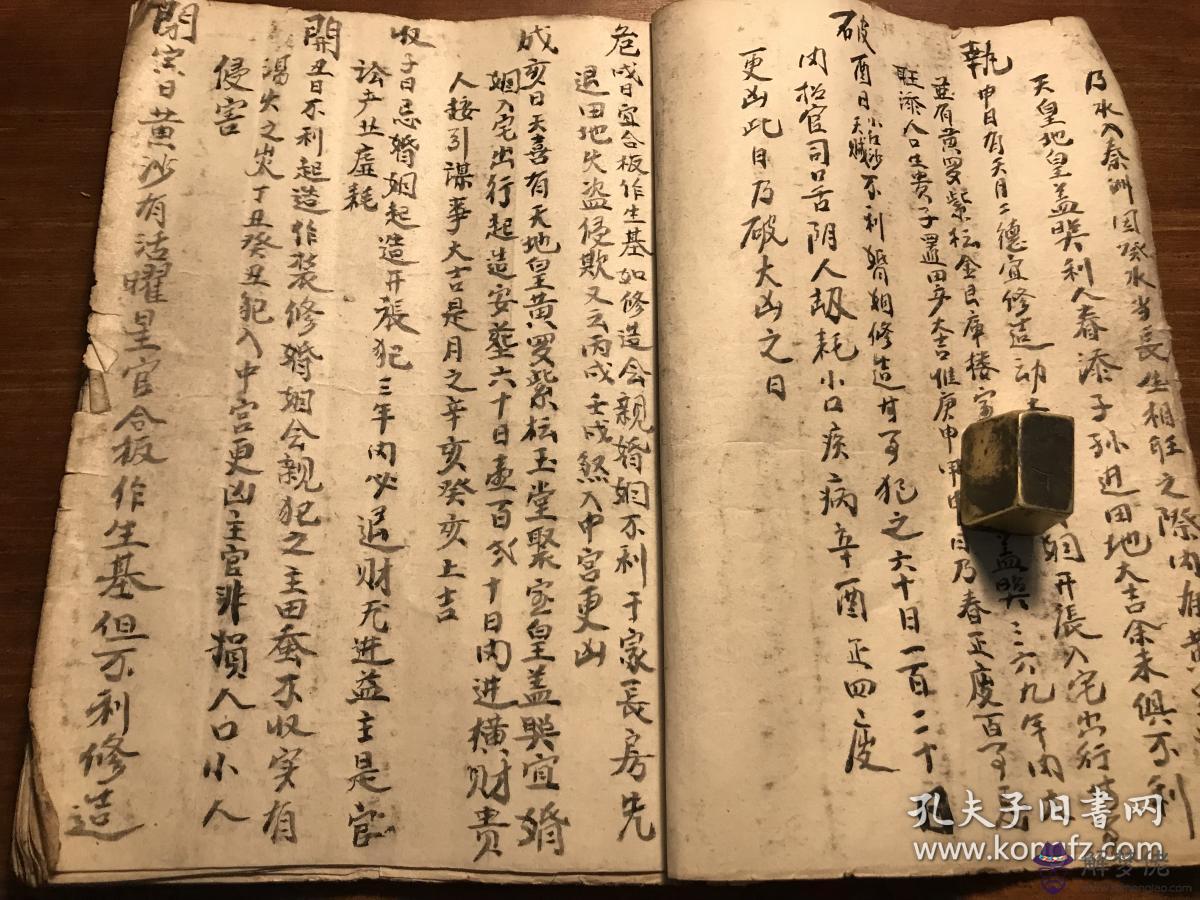 乃水入秦州国癸水当長生相旺之際内有黄
天皇地皇盖照利人眷添子孙进田地大吉余未俱不利
執申日有天月二德宜修造动 姻开張入宅出行
並有黄罗紫枟金艮庫楼 盖照三六九年内
旺添人口生貴子置田多大吉惟庚申甲申日乃春正废百
破酉日小口沙天贼不利婚姻修造 犯之六十日一百二十日
内招官司口舌阴人刼耗小口疾病辛酉正四废
更凶此日乃破大凶之日
危戌日宜合板作生基如修造会親婚姻不利于家長房先
退田地失盗侵欺又云丙戌壬戌煞入中宫更凶
成亥日天喜有天地皇黄罗紫枟玉堂聚宝皇盖照宜婚
姻入宅出行起造安塟六十日壹百弍十日内进横财贵
人接引谋事大吉是月之辛亥癸亥上吉
收子日忌婚姻起造开張犯三年内必退财无进益主是官
訟产业虚耗
開丑日不利起造作装修婚姻会親犯之主田蚕不收实有
湯失之灾丁丑癸丑犯入中宫更凶主官非損人口小人
侵害
閉寅日黄沙有活曜星官合板作生基但不利修造
孔夫子旧书网
www.kongfz.com
解梦佬
www.jiemenglao.com